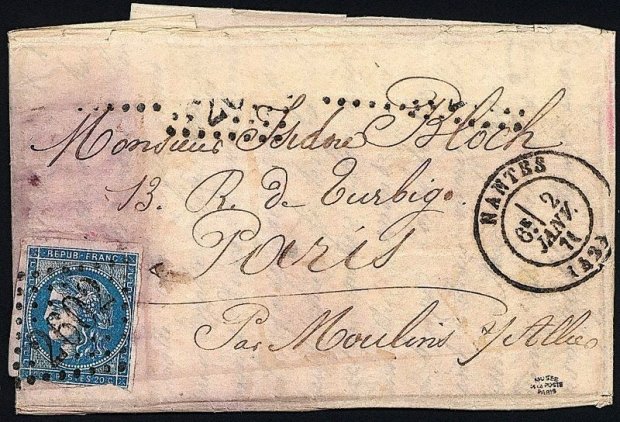 Monsieur Isidore Bloch
13. R. de Turbigo.
Paris
Par Moulins s/Allier
NANTES
6E 2
JANV.
71
(42)
REPUB. FRANC.
2602
POSTES 20 C
MUSÉE
DE LA POSTE
PARIS